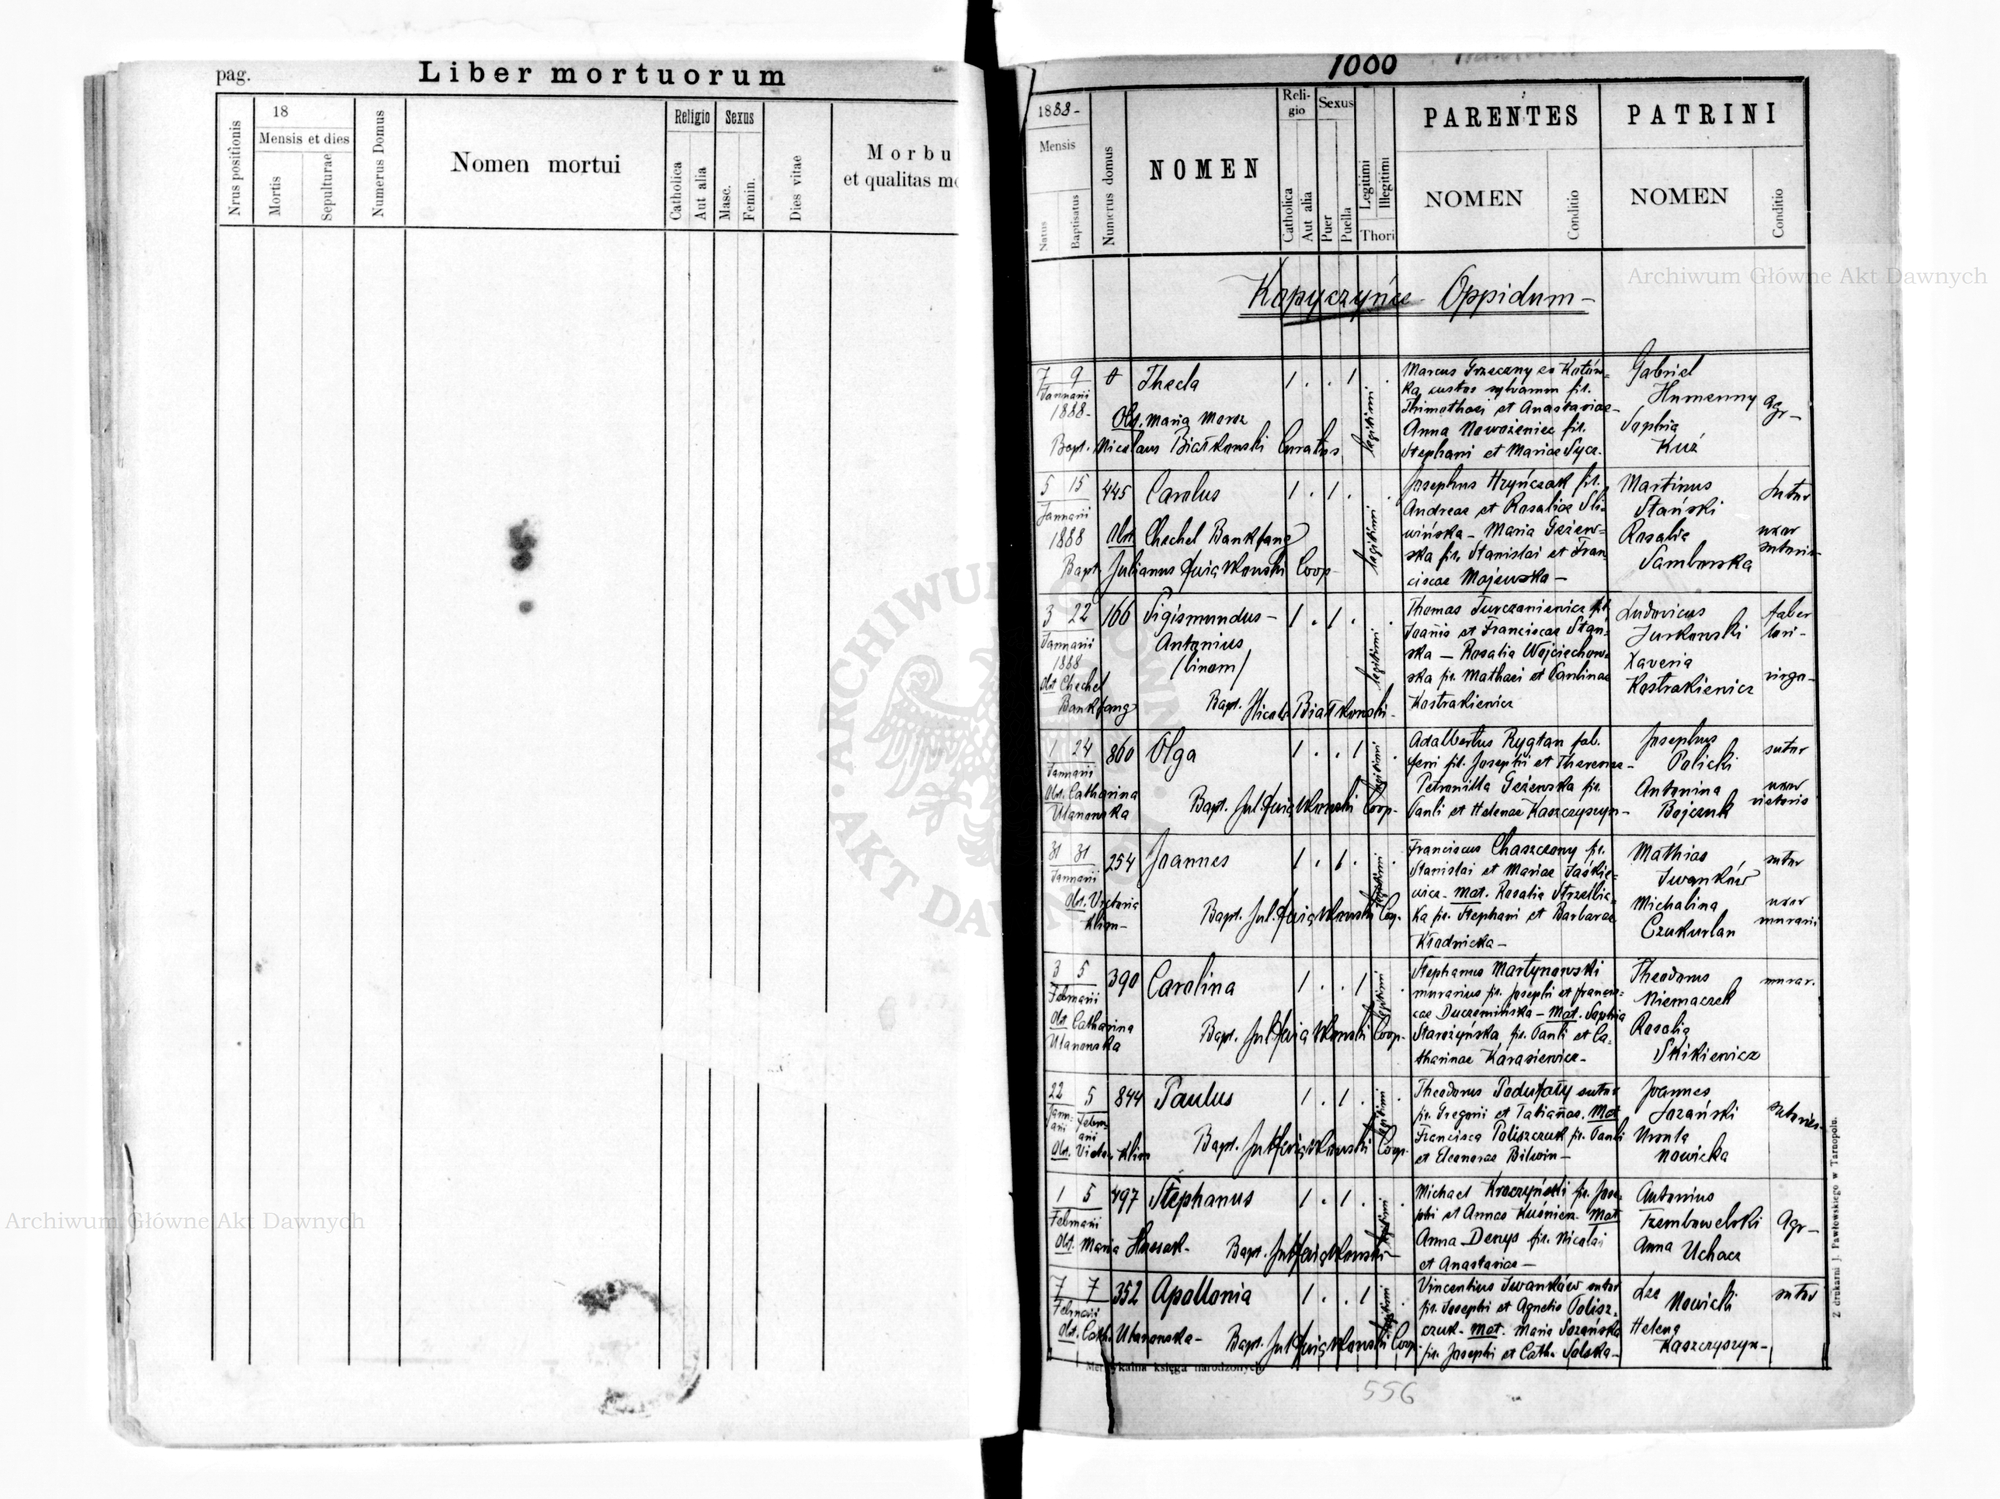 pag.
Liber mortuorum
Nrus positionis
18
Mensis et dies
Mortis
Sepulturae
Numerus Domus
Nomen mortui
Religio
Catholica
Aut alia
Sexus
Masc.
Femin.
Dies vitae
Morbu
et qualitas mo
1000
1888-
Mensis
Natus
Baptisatus
Numerus domus
NOMEN
Reli-
gio
Catholica
Aut alia
Sexus
Puer
Puella
Legitimi
Illegitimi
Thori
PARENTES
NOMEN
Conditio
PATRINI
NOMEN
Conditio
Kopyczyńce Oppidum-
7 9
Januarii
1888-
Thecla
1 . . 1 .
legitimi
Obs. Maria Moroz
Bapt. Nicolaus Białkowski Curatus
Marcus Grzeczny
custos sylvarum fil.
Thimothaei et Anastasiae-
Anna Nowożeniec fil.
Stephani et Mariae
Gabriel
Humenny
Sophia
Kuź
Agr-
5 15
Januarii
1888
445
Carolus
1 . 1 .
legitimi
Obst. Chechel Bankfang
Bapt. Julianus Kwiatkowski Coop
Josephus Hryńczak fil.
Andreae et Rosaliae Śli-
wińska - Maria Geżew-
ska fil. Stanislai et Fran-
ciscae Majewska-
Martinus
Stański
Rosalia
Samborska
sutor
uxor
sutoris-
3 22
Januarii
1888
166
Sigismundus-
Antonius
/binom/
1 . 1 . .
legitimi
Obst Chechel
Bankfang
Bapt. Nicol. Białkowski-
Thomas Turczaniewicz fil
Joannis et Franciscae Stań-
ska - Rosalia Wojciechow-
ska fil. Mathaei et Paulinae
Kostrakiewicz
Ludovicus
Jurkowski
Xaveria
Kostrakiewicz
faber
lori-
virgo-
1 24
Januarii
860
Olga
1 . . 1 .
legitimi
Obst. Catharina
Ulanowska
Bapt. Jul. Kwiatkowski Coop-
Adalbertus Rygtan fab.
ferri fil. Josephi et Theresiae-
Petronilla Geżewska fil.
Pauli et Helenae Kaszczyszyn-
Josephus
Policki
Antonina
Bojczuk
sutor
uxor
31 31
Januarii
254
Joannes
1 . 1 . .
legitimi
Obs. Victoria
Klim-
Bapt. Jul. Kwiatkowski Coop-
Franciscus Chaszczowy fil.
Stanislai et Mariae Jaśkie-
wicz- Mat. Rosalia Strzelbic-
ka fil. Stephani et Barbarae
Kładnicka-
Mathias
Iwanków
Michalina
Czukurlan
sutor
uxor
murarii
3 5
Februarii
390
Carolina
1 . . 1 .
legitimi
Obst Catharina
Ulanowska
Bapt. Jul Kwiatkowski Coop-
Stephanus Martynowski
murarius fil. Josephi et Francis-
cae Duczemińska - Mat. Sophia
Starożyńska fil. Pauli et Ca-
tharinae Karasiewicz-
Theodorus
Niemaczek
Rosalia
Skikiewicz
murar.
22 5
844
Paulus
1 . 1 . .
legitimi
Obs. Victor. Klim
Bapt. Jul Kwiatkowski Coop-
Theodorus Podufały sutor
fil. Gregorii et Tatiannae. Mat
Francisca Poliszczuk fil. Pauli
et Eleonorae Bilwin-
Joannes
Sozański
Ursula
Nowicka
1 5
Februarii
497
Stephanus
1 . 1 . .
legitimi
Obst. Maria
Bapt. Jul Kwiatkowski-
Michael Kroczyński fil. Jose-
phi et Annae Kuśnierz. Mat
Anna Denys fil. Nicolai
et Anastasiae-
Antonius
Trembowelski
Anna Uchacz
Agr-
7 7
Februarii
352
Apollonia
1 . . 1 .
legitimi
Obst. Cath. Ulanowska-
Bapt. Jul Kwiatkowski Coop.
Vincentius Iwanków sutor
fil. Josephi et Agnetis Polisz-
czuk- Mat. Maria Sozańska
fil. Josephi et Cath. Solska-
Leo
Nowicki
Helena
Kaszczyszyn-
sutor
księga narodzonych
Z drukarni J. Pawłowskiego w Tarnopolu.
556
Archiwum Główne Akt Dawnych
Archiwum Główne Akt Dawnych
ARCHIWUM GŁÓWNE
AKT DAWNYCH